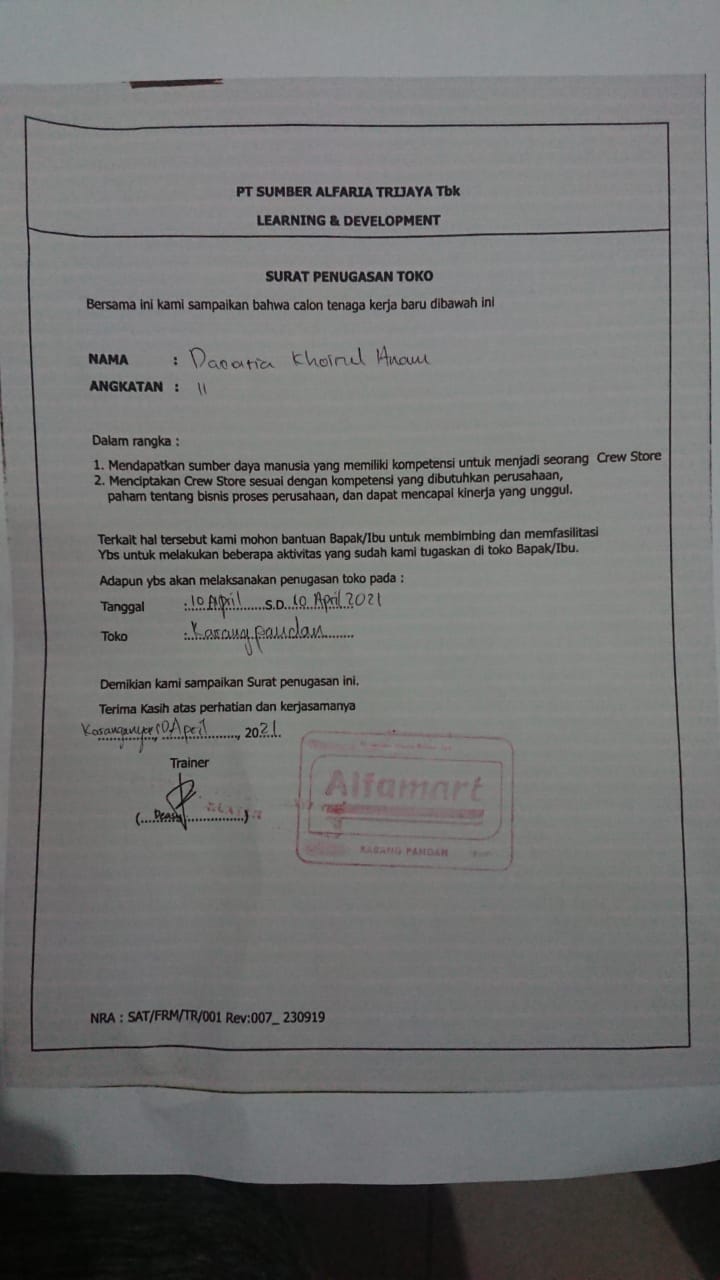 PT SUMBER ALFARIA TRIJAYA Tbk
LEARNING & DEVELOPMENT
SURAT PENUGASAN TOKO
Bersama ini kami sampaikan bahwa calon tenaga kerja baru dibawah ini
NAMA : Khoirul Anam
ANGKATAN : 11
Dalam rangka :
1. Mendapatkan sumber daya manusia yang memiliki kompetensi untuk menjadi seorang Crew Store
2. Menciptakan Crew Store sesuai dengan kompetensi yang dibutuhkan perusahaan,
paham tentang bisnis proses perusahaan, dan dapat mencapai kinerja yang unggul.
Terkait hal tersebut kami mohon bantuan Bapak/Ibu untuk membimbing dan memfasilitasi
Ybs untuk melakukan beberapa aktivitas yang sudah kami tugaskan di toko Bapak/Ibu.
Adapun ybs akan melaksanakan penugasan toko pada :
Tanggal : 10 April S.D. 10 April 2021
Toko : Karangpandan
Demikian kami sampaikan Surat penugasan ini.
Terima Kasih atas perhatian dan kerjasamanya
Karanganyar, 10 April, 2021.
Trainer
Alfamart
KARANG PANDAN
NRA : SAT/FRM/TR/001 Rev:007_ 230919